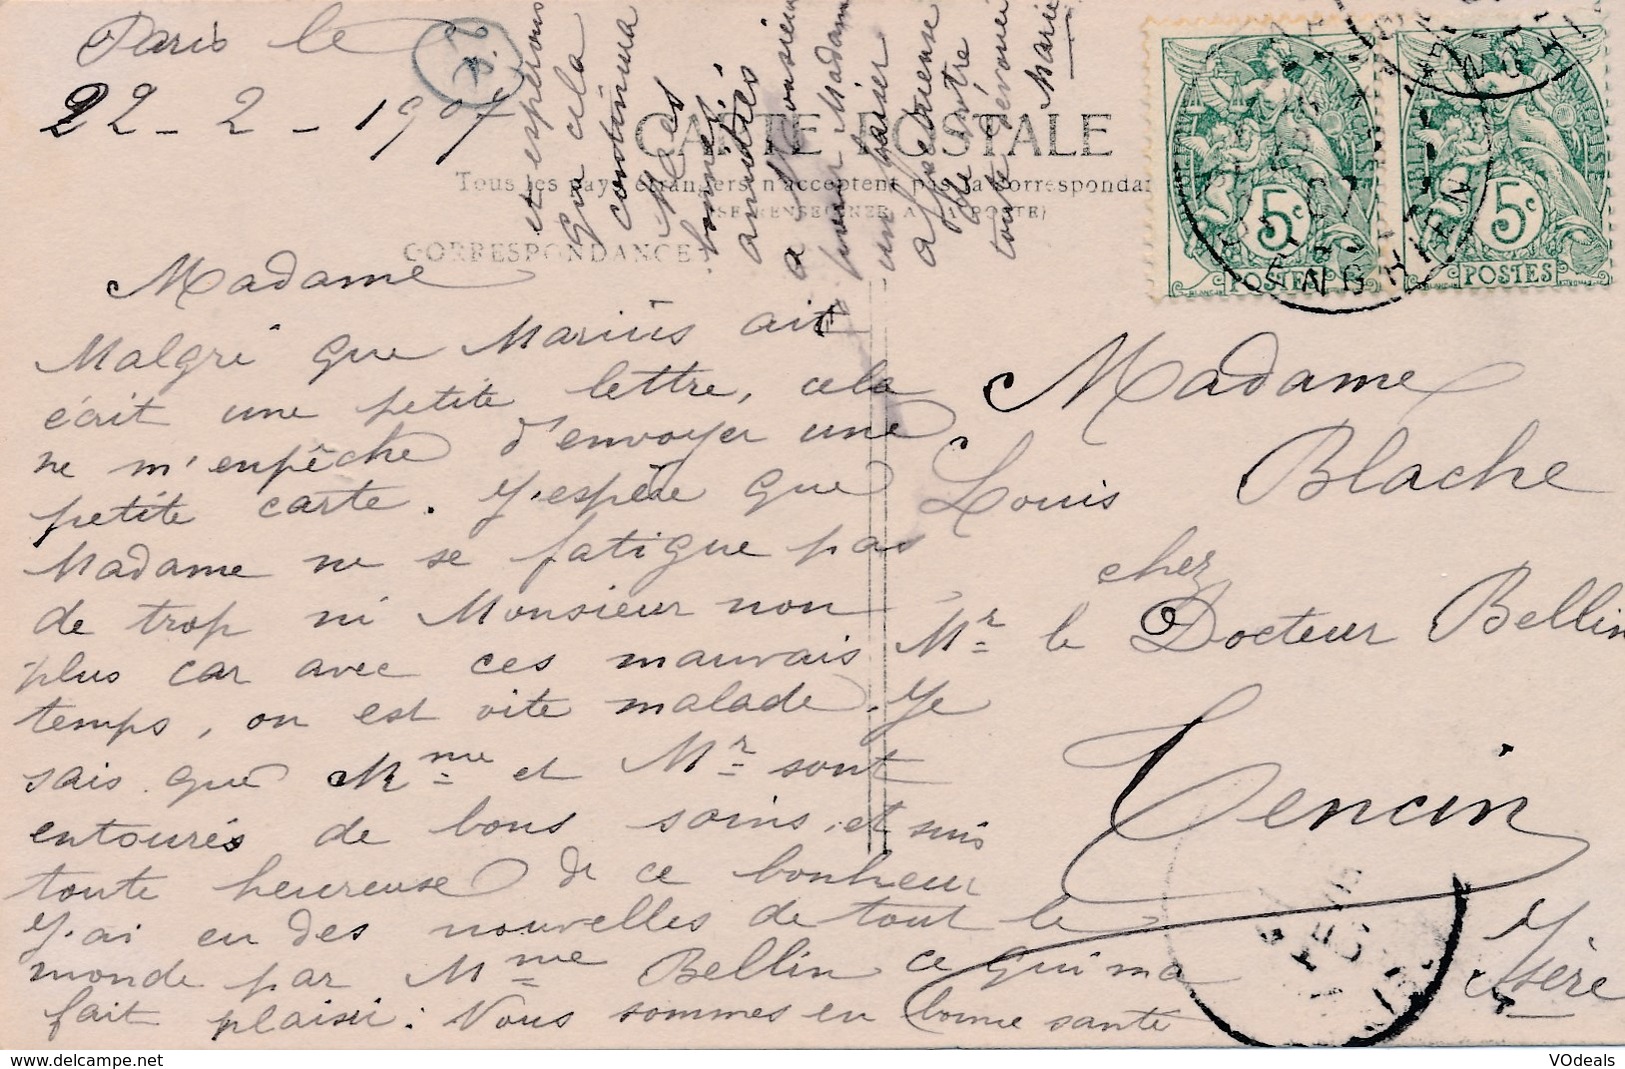 Paris le
22 - 2 - 1907
CARTE POSTALE
Tous les pays étrangers n'acceptent pas la Correspondan
(SE RENSEIGNER A LA POSTE)
CORRESPONDANCE
Madame
Malgré que Marius ait
écrit une petite lettre, cela
ne m'enpêche d'envoyer une
petite carte. J'espère que
Madame ne se fatigue pas
de trop ni Monsieur non
plus car avec ces mauvais
temps, on est vite malade. Je
sais que Mme et Mr sont
entourés de bons soins, et suis
toute heureuse de ce bonheur
J'ai eu des nouvelles de tout le
monde par Mme Bellin ce qui ma
fait plaisir. Nous sommes en bonne santé
et espérons
que cela
continua
Mes
bonnes
amitiés
a Monsieur
pour Madame
un baiser
affectueuse
de votre
toute dévouée
Marie
5c
POSTES
5c
POSTES
Madame
Louis Blache
chez
Mr le Docteur Bellin
Tencin
Isère
VOdeals
www.delcampe.net